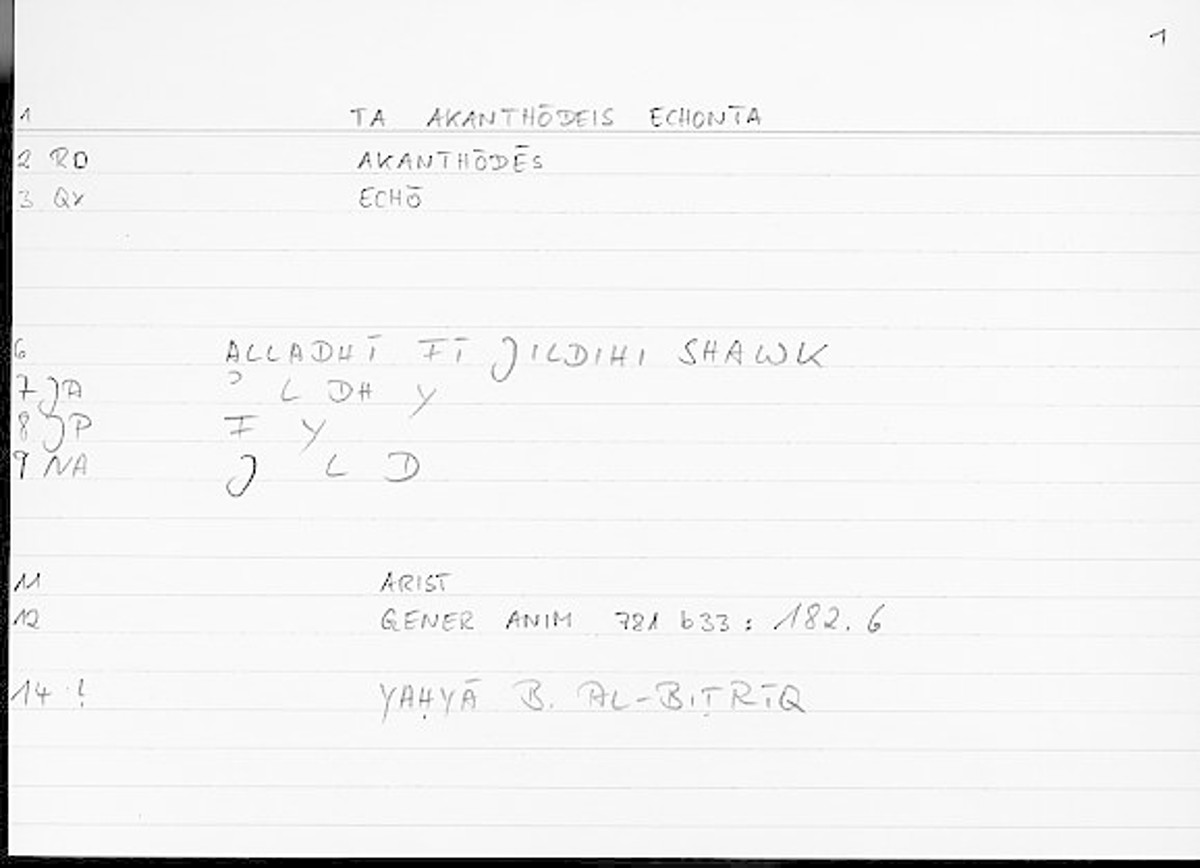 1
1 TA AKANTHŌDEIS ECHONTA
2 RD AKANTHŌDĒS
3 Qx ECHŌ
6 ALLADHĪ FĪ JILDIHI SHAWK
7 JA ʾ L DH Y
8 JP F Y
9 NA J L D
11 ARIST
12 GENER ANIM 781 b33 : 182.6
14 ! YAḤYĀ B. AL-BIṬRĪQ